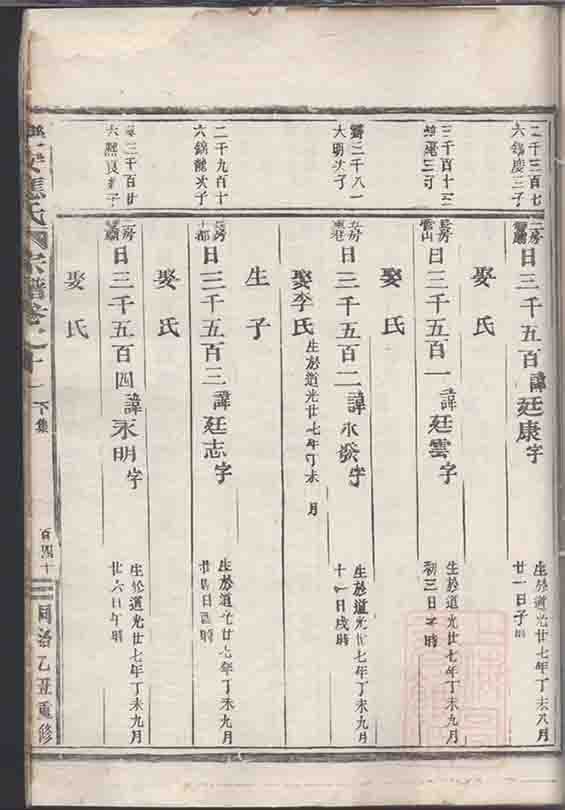 二千三百七
六錦慶三子
二房
日三千五百諱廷康字
生於道光廿七年丁未八月
廿一日子時
娶氏
三千百十
三子
房
雪山
日三千五百一諱廷雲字
生於道光廿七年丁未九月
初三日子時
娶氏
三千八一
大明次子
房
日三千五百二諱永發字
生於道光廿七年丁未九月
十一日戌時
娶李氏
生於道光廿七年丁未 月
生子
二千九百十
六錦龍次子
房
都
日三千五百三諱廷志字
生於道光廿七年丁未九月
日酉時
娶氏
三千百廿
房
日三千五百四諱永明字
生於道光廿七年丁未九月
廿六日午時
娶氏
氏宗譜卷之十一
下集
同治乙丑重修